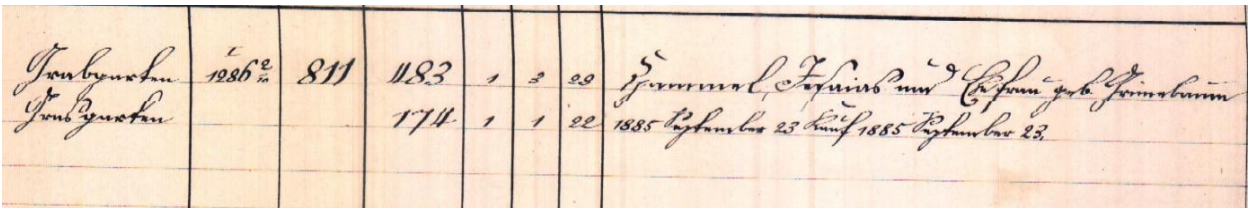 Grabgarten 1286 2/10 811 483 1 3 29 Hammel, Jesaias und Ehefrau geb. Grünebaum
Grasgarten 174 1 1 22 1885 September 23 Kauf 1885 September 23.